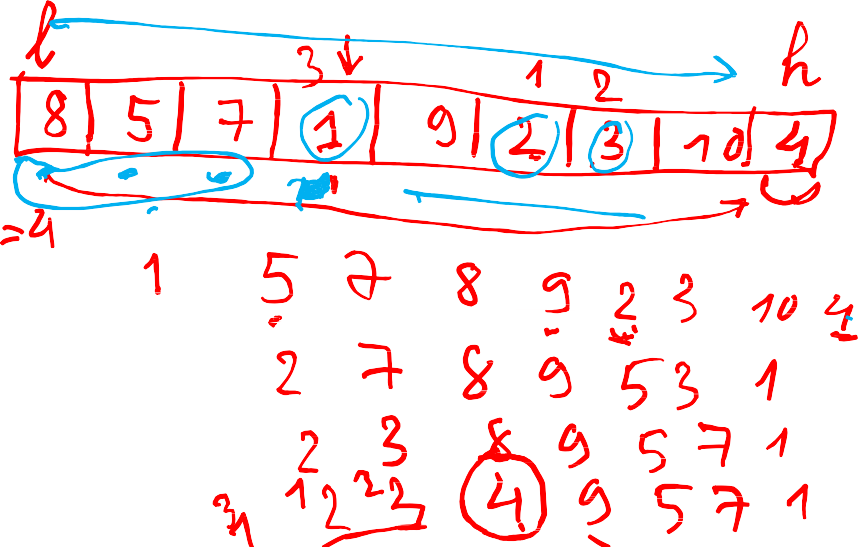 l h
3 1 2
8 5 7 1 9 2 3 10 4
=4
1 5 7 8 9 2 3 10 4
2 7 8 9 5 3 1
2 3 8 9 5 7 1
4 9 5 7 1